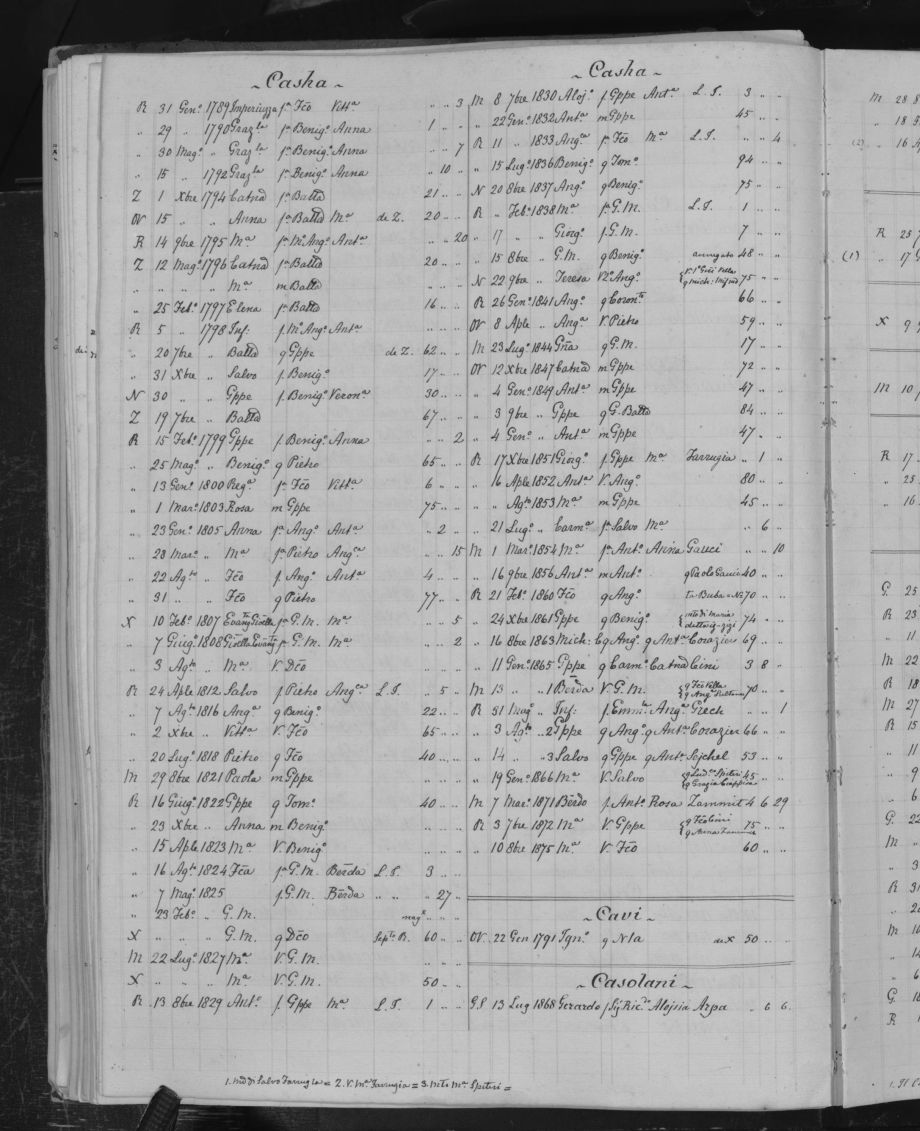 ~ Casha ~
R 31 Gen.º 1789 Imperiuzza fª Fcõ Vittª „ „ 3
„ 29 „ 1790 Grazˡᵃ fª Benig.º Anna 1 „ „
„ 30 Mag.º „ Grazˡᵃ fª Benig.º Anna „ „ 7
„ 15 „ 1792 Grazˡᵃ fª Benig.º Anna „ 10 „
Z 1 Xbre 1794 Catnã fª Battã 21 „ „
OV 15 „ „ Anna fª Battã Mª de Z. 20 „ „
R 14 9bre 1795 Mª fª M. Ang.º Antª „ „ 20
Z 12 Mag.º 1796 Catnã fª Battã 20 „ „
„ „ „ „ Mª m Battã „ „ „
„ 25 Feb.º 1797 Elena fª Battã 16 „ „
R 5 „ 1798 Inf: f. M. Ang.º Antª „ „ „
„ 20 7bre „ Battã q Gppe de Z. 62 „ „
„ 31 Xbre „ Salvo f. Benig.º 17 „ „
N 30 „ „ Gppe f. Benig.º Veronª 30 „ „
Z 19 7bre „ Battã 67 „ „
R 15 Feb.º 1799 Gppe f. Benig.º Anna „ „ 2
„ 25 Mag.º „ Benig.º q Pietro 65 „ „
„ 13 Gen.º 1800 Regª fª Fcõ Vittª 6 „ „
„ 1 Mar.º 1803 Rosa m Gppe 75 „ „
„ 23 Gen.º 1805 Anna fª Ang.º Antª „ 2 „
„ 28 Mar.º „ Mª fª Pietro Angᶜᵃ „ „ 15
„ 22 Agᵗº „ Fcõ f. Ang.º Antª 4 „ „
„ 31 „ „ Fcõ q Pietro 77 „ „
X 10 Feb.º 1807 fª G. M. Mª „ „ 5
„ 7 Giug.º 1808 fª G. M. Mª „ „ 2
„ 3 Agᵗº „ Mª V. Dcõ „ „ „
R 24 Aple 1812 Salvo f. Pietro Angᶜᵃ L.S. „ 5 „
„ 7 Agᵗº 1816 Angª q Benig.º 22 „ „
„ 2 Xbre „ Vittª V. Fcõ 65 „ „
„ 20 Lug.º 1818 Pietro q Fcõ 40 „ „
M 29 8bre 1821 Paola m Gppe „ „ „
R 16 Giug.º 1822 Gppe q Tom.º 40 „ „
„ 23 Xbre „ Anna m Benig.º „ „ „
„ 15 Aple 1823 Mª V. Benig.º „ „ „
„ 16 Agᵗº 1824 Fcã fª G. M. Bẽrda L.S. 3 „ „
„ 7 Mag.º 1825 f. G. M. Bẽrda „ „ „ 27 „
„ 23 Feb.º „ G. M. „ „ „
X „ „ „ G. M. q Dcõ Septe R. 60 „ „
M 22 Lug.º 1827 Mª V. G. M. „ „ „
X „ „ „ Mª V. G. M. 50 „ „
R 13 8bre 1829 Ant.º f. Gppe Mª L.S. 1 „ „
~ Casha ~
M 8 7bre 1830 Aloj.º f. Gppe Antª L.S. 3 „ „
„ 22 Gen.º 1832 Antª m Gppe 45 „ „
R 11 „ 1833 Angᶜᵃ fª Fcõ Mª L.S. „ „ 4
„ 15 Lug.º 1836 Benig.º q Tom.º 94 „ „
N 20 8bre 1837 Ang.º q Benig.º 75 „ „
R „ Feb.º 1838 Mª fª G. M. L.S. 1 „ „
„ 17 „ „ Giorg.º f. G. M. 7 „ „
„ 15 8bre „ G. M. q Benig.º 48 „ „
N 22 9bre „ Teresa Vª Ang.º 75 „ „
R 26 Gen.º 1841 Ang.º q 66 „ „
OV 8 Aple „ Angª V. Pietro 59 „ „
M 23 Lug.º 1844 Grĩa q G. M. 17 „ „
OV 12 Xbre 1847 Catnã m Gppe 72 „ „
„ 4 Gen.º 1849 Antª m Gppe 47 „ „
„ 3 9bre „ Gppe q G. Battã 84 „ „
„ 4 Gen.º „ Antª m Gppe 47 „ „
R 17 Xbre 1851 Giorg.º f. Gppe Mª Farrugia „ 1 „
„ 16 Aple 1852 Antª V. Ang.º 80 „ „
„ „ Agᵗº 1853 Mª m Gppe 45 „ „
„ 21 Lug.º „ Carmª fª Salvo Mª „ 6 „
M 1 Mar.º 1854 Mª fª Ant.º Anna Gauci „ „ 10
„ 16 9bre 1856 Antª m Ant.º q Paolo Gauci 40 „ „
R 21 Feb.º 1860 Fcõ q Ang.º 70 „ „
„ 24 Xbre 1861 Gppe q Benig.º 74 „ „
„ 16 8bre 1863 Mich: C q Ang.º q Antª Corazier 69 „ „
„ 11 Gen.º 1865 Gppe q Carm.º Catnã Cini 3 8 „
M 13 „ „ 1 Bẽrda V. G. M. {q Fcõ Vella 70 „ „
R 31 Mag.º „ Inf: f. Emmˡᵃ Angª Grech „ „ 1
„ 3 Agᵗº „ 2 Gppe q Ang.º q Ant.º Corazier 66 „ „
„ 14 „ „ 3 Salvo q Gppe q Ant.º Sejchel 53 „ „
„ 19 Gen.º 1866 Mª V. Salvo {q Lud.º Spiteri 45 „ „
{q Grazia Ciappara
M 7 Mar.º 1871 Bẽrdo f. Ant.º Rosa Zammit 4 6 29
R 3 7bre 1872 Mª V. Gppe {q Fcõ Cini 75 „ „
{q Anna Zammit
„ 10 8bre 1875 Mª V. Fcõ 60 „ „
~ Cavi ~
OV 22 Gen 1791 Ign.º q Nla de X 50 „ „
~ Casolani ~
G.S 13 Lug 1868 Gerardo f Sig Ric.º Alojsia Azpa „ 6 6.
1. Md di Salvo Farrugia = 2. V. Mª Farrugia = 3. Mto Mª Spiteri =
M 28 8
„ 18
(2) „ 16
R 23
(1) „ 17
X 9
M 10
R 17
„ 25
„ 16
G. 25
R 23
„ 11
M 22
R 18
M 27
R 15
„ 11
„ 9
„ 6
G. 22
M „
„ 3
R 31
„ 2
M 10
„ 14
„ 6
G. 10
R 1